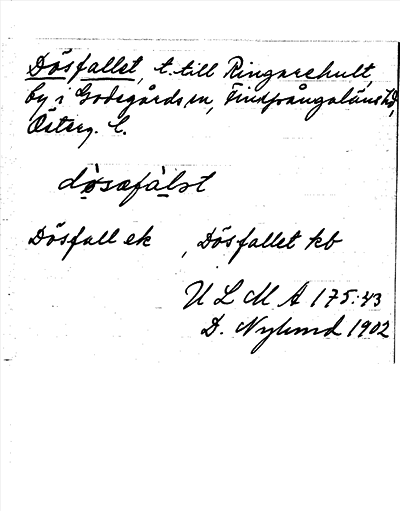 Dösfallet, t. till Ringarehult,
by i Godegårds sn, Finspångaläns hd,
Österg. l.
dösafàlst
Dösfall ek , Dösfallet kb
U L M A 175:43
D. Nylund 1902